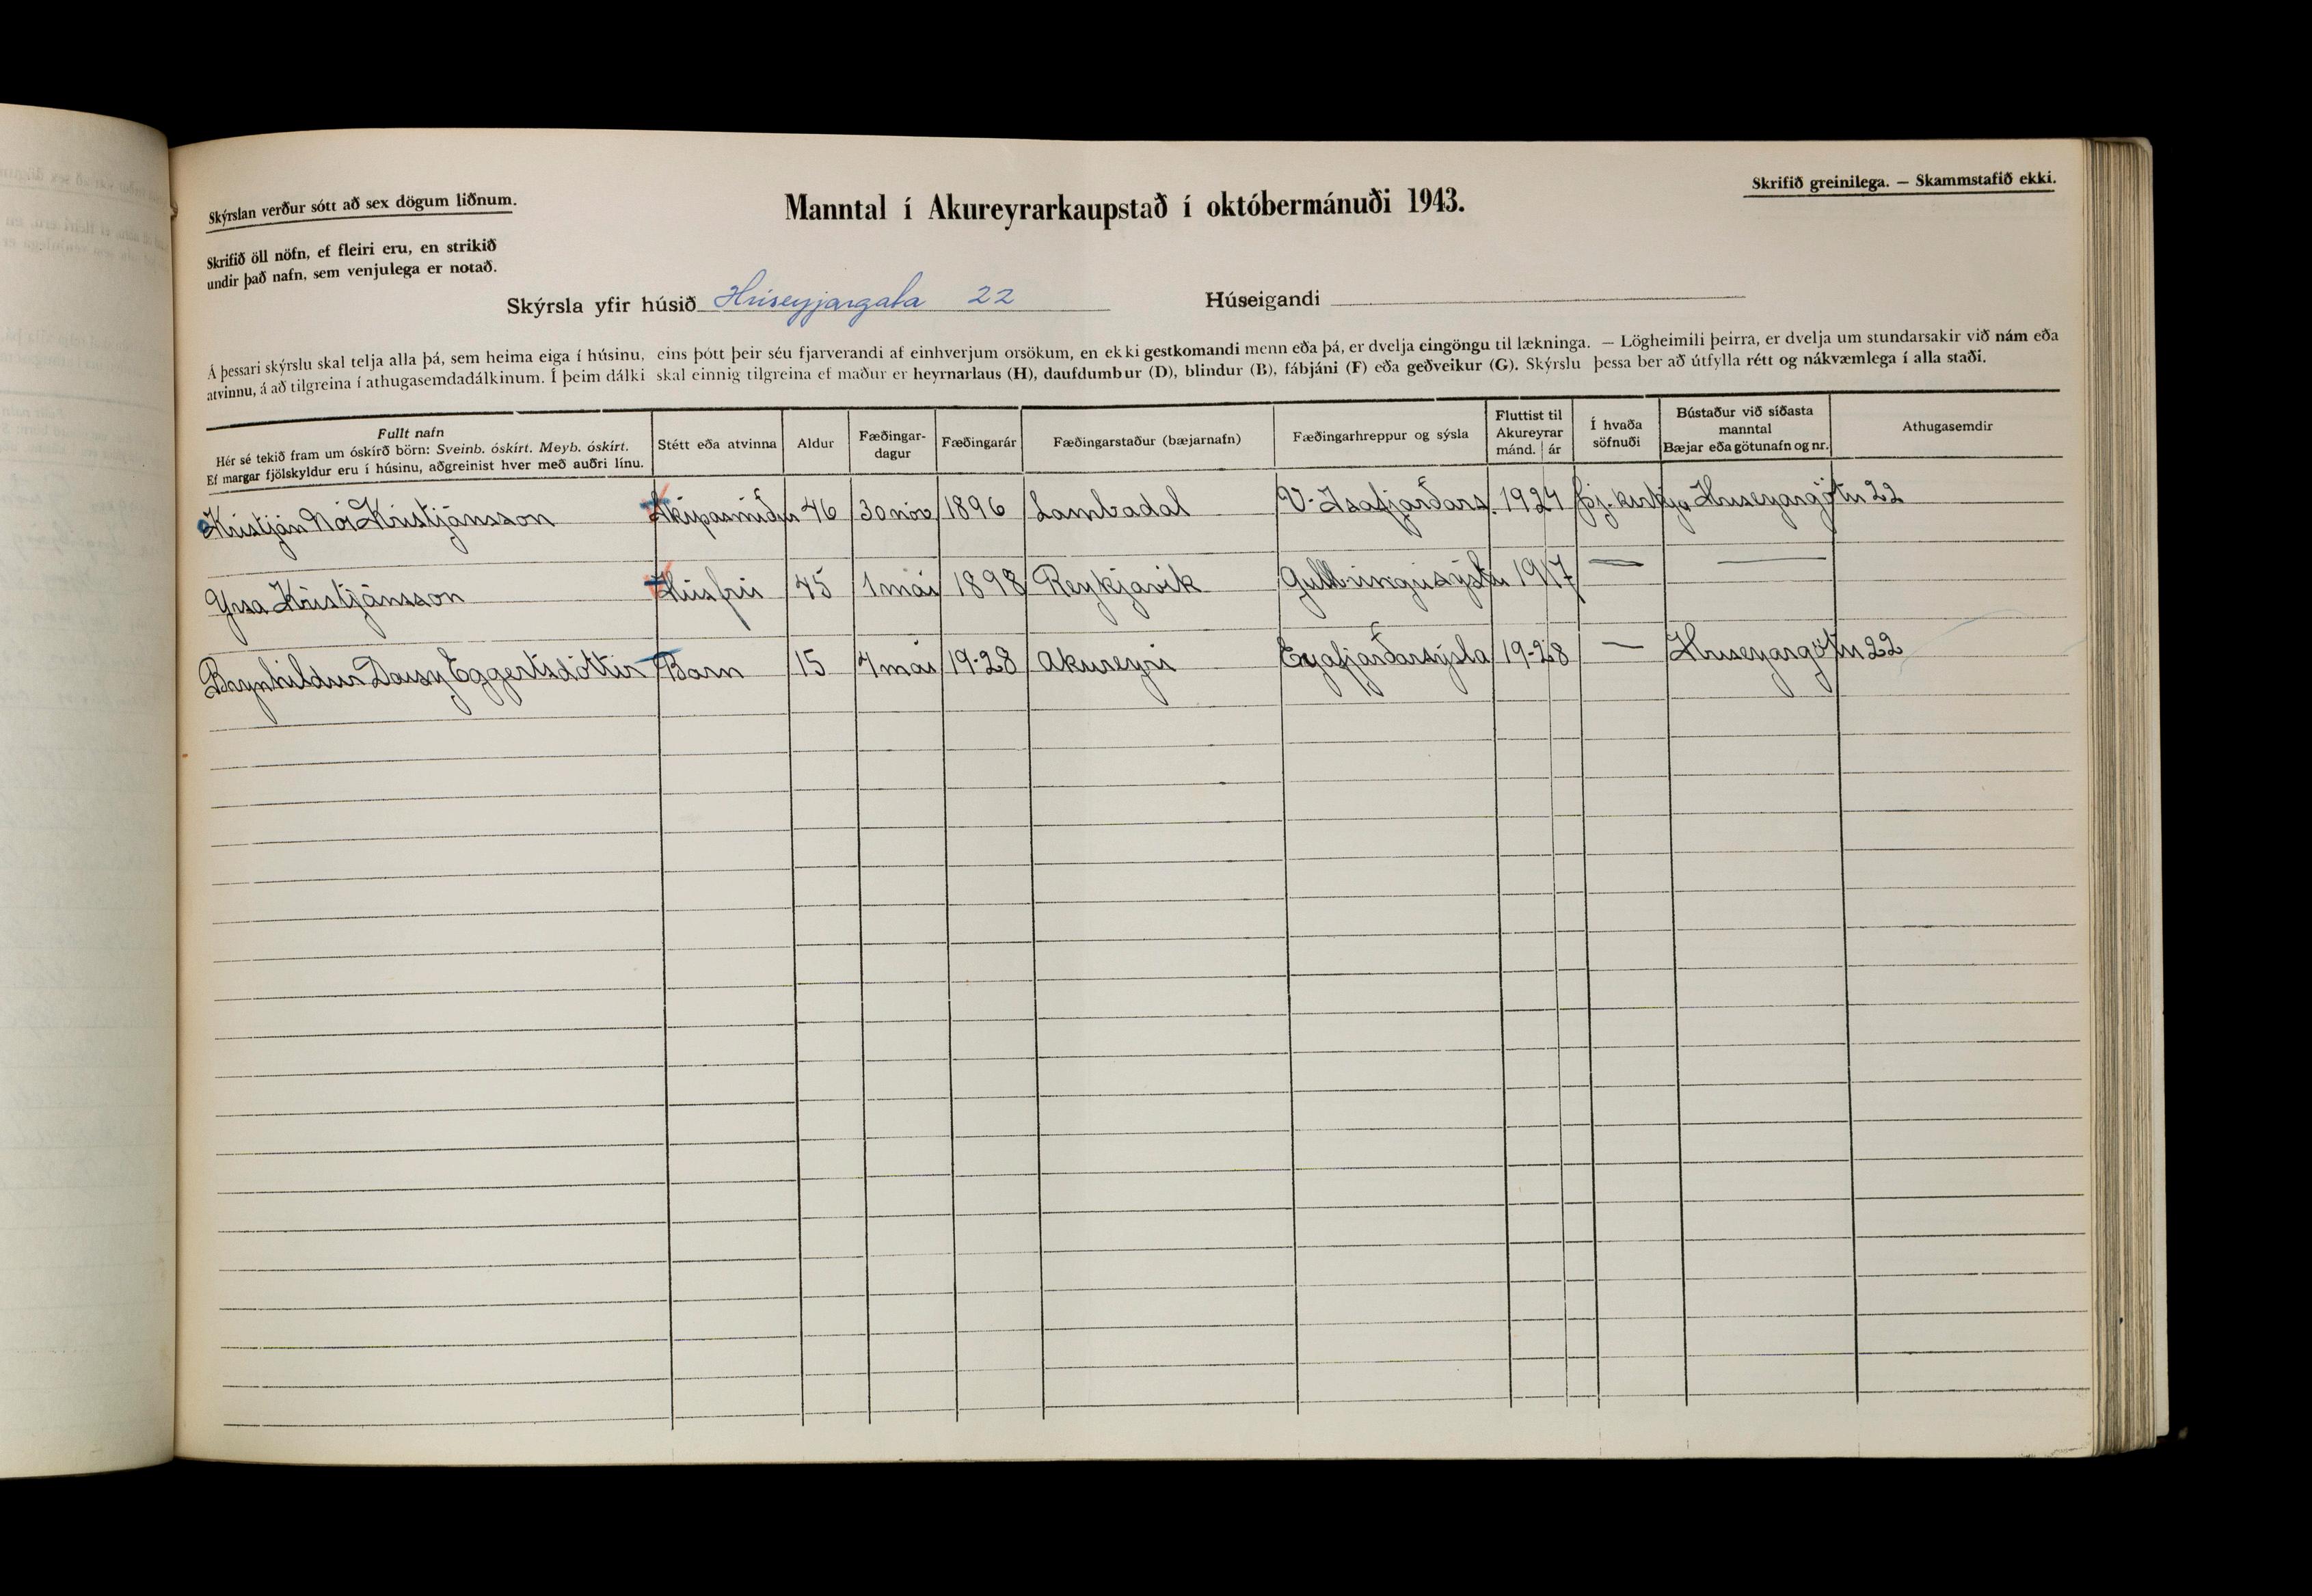 Skýrslan verður sótt að sex dögum liðnum.
Manntal í Akureyrarkaupstað í októbermánuði 1943.
Skrifið greinilega. — Skammstafið ekki.
Skrifið öll nöfn, ef fleiri eru, en strikið
undir það nafn, sem venjulega er notað.
Skýrsla yfir húsið Hríseyjargata 22 Húseigandi
Á þessari skýrslu skal telja alla þá, sem heima eiga í húsinu, eins þótt þeir séu fjarverandi af einhverjum orsökum, en ekki gestkomandi menn eða þá, er dvelja eingöngu til lækninga. — Lögheimili þeirra, er dvelja um stundarsakir við nám eða
atvinnu, á að tilgreina í athugasemdadálkinum. Í þeim dálki skal einnig tilgreina ef maður er heyrnarlaus (H), daufdumbur (D), blindur (B), fábjáni (F) eða geðveikur (G). Skýrslu þessa ber að útfylla rétt og nákvæmlega í alla staði.
Fullt nafn
Hér sé tekið fram um óskírð börn: Sveinb. óskírt. Meyb. óskírt.
Ef margar fjölskyldur eru í húsinu, aðgreinist hver með auðri línu.
Stétt eða atvinna
Aldur
Fæðingar-
dagur
Fæðingarár
Fæðingarstaður (bæjarnafn)
Fæðingarhreppur og sýsla
Fluttist til
Akureyrar
mánd. ár
Í hvaða
söfnuði
Bústaður við síðasta
manntal
Bæjar eða götunafn og nr.
Athugasemdir
Kristján Nói Kristjánsson Skipasmiður 46 30 nóv 1896 Lambadal V-Ísafjarðars. 1924 þj.kirkja Hríseyargötu 22
Yrsa Kristjánsson Húsfrú 45 1 mai 1898 Reykjavík Gullbringusýslu 1917 — —
Brynhildur Daisy Eggertsdóttir Barn 15 7 mai 19-28 Akureyri Eyafjarðarsýsla 19-28 — Hríseyargötu 22